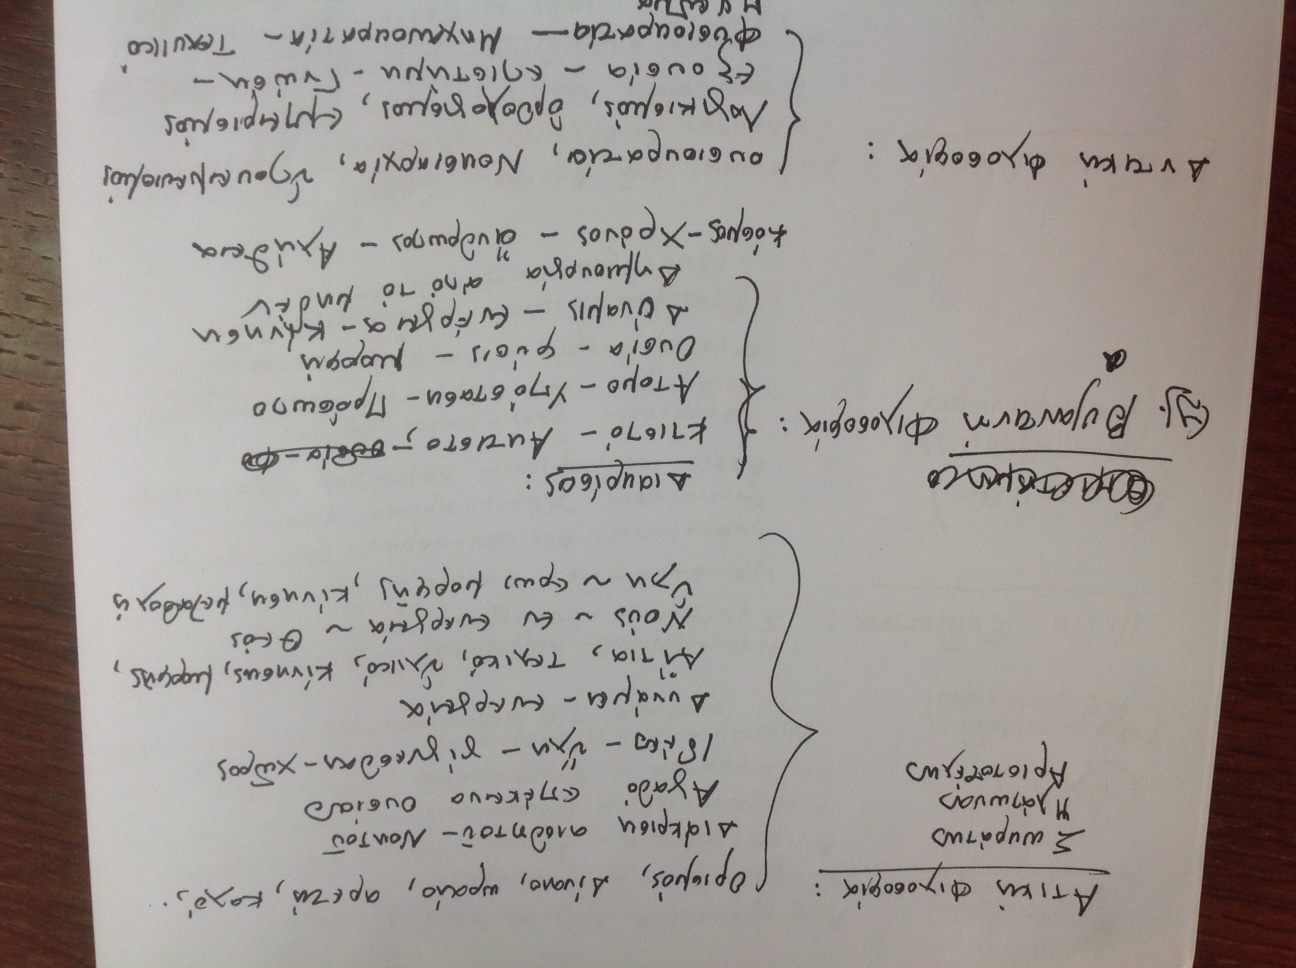 Αττική Φιλοσοφία:
Σωκράτης
Πλάτωνας
Αριστοτέλης
Ορισμός, Δίκαιο, ωραίο, αρετή, καλό,
Διάκριση αισθητού - Νοητού
Αγαθό επέκεινα ουσίας
Ιδέες - ύλη - γίγνεσθαι - χώρος
Δυνάμει - ενεργεία
Αίτια, τελικό, υλικό, κίνησης, μορφής,
Νους ~ εν ενεργεία ~ Θεός
Ύλη ~ έρως μορφής, κίνηση, μεταβολή
Βυζαντινή Φιλοσοφία:
α
Διακρίσεις:
Κτιστό - Άκτιστο -
Άτομο - Υπόσταση - Πρόσωπο
Ουσία - φύσις - μορφή
Δύναμις - ενέργεια - Κίνηση
Δημιουργία από το μηδέν
Κόσμος - Χρόνος - άνθρωπος - Αλήθεια
Δυτική Φιλοσοφία:
ουσιοκρατία, Νοησιαρχία,
Λογικισμός, ορθολογισμός, εμπειρισμός
Εξουσία - επιστήμη - Γνώση -
Φυσιοκρατία - Μηχανοκρατία - Τεχνικό